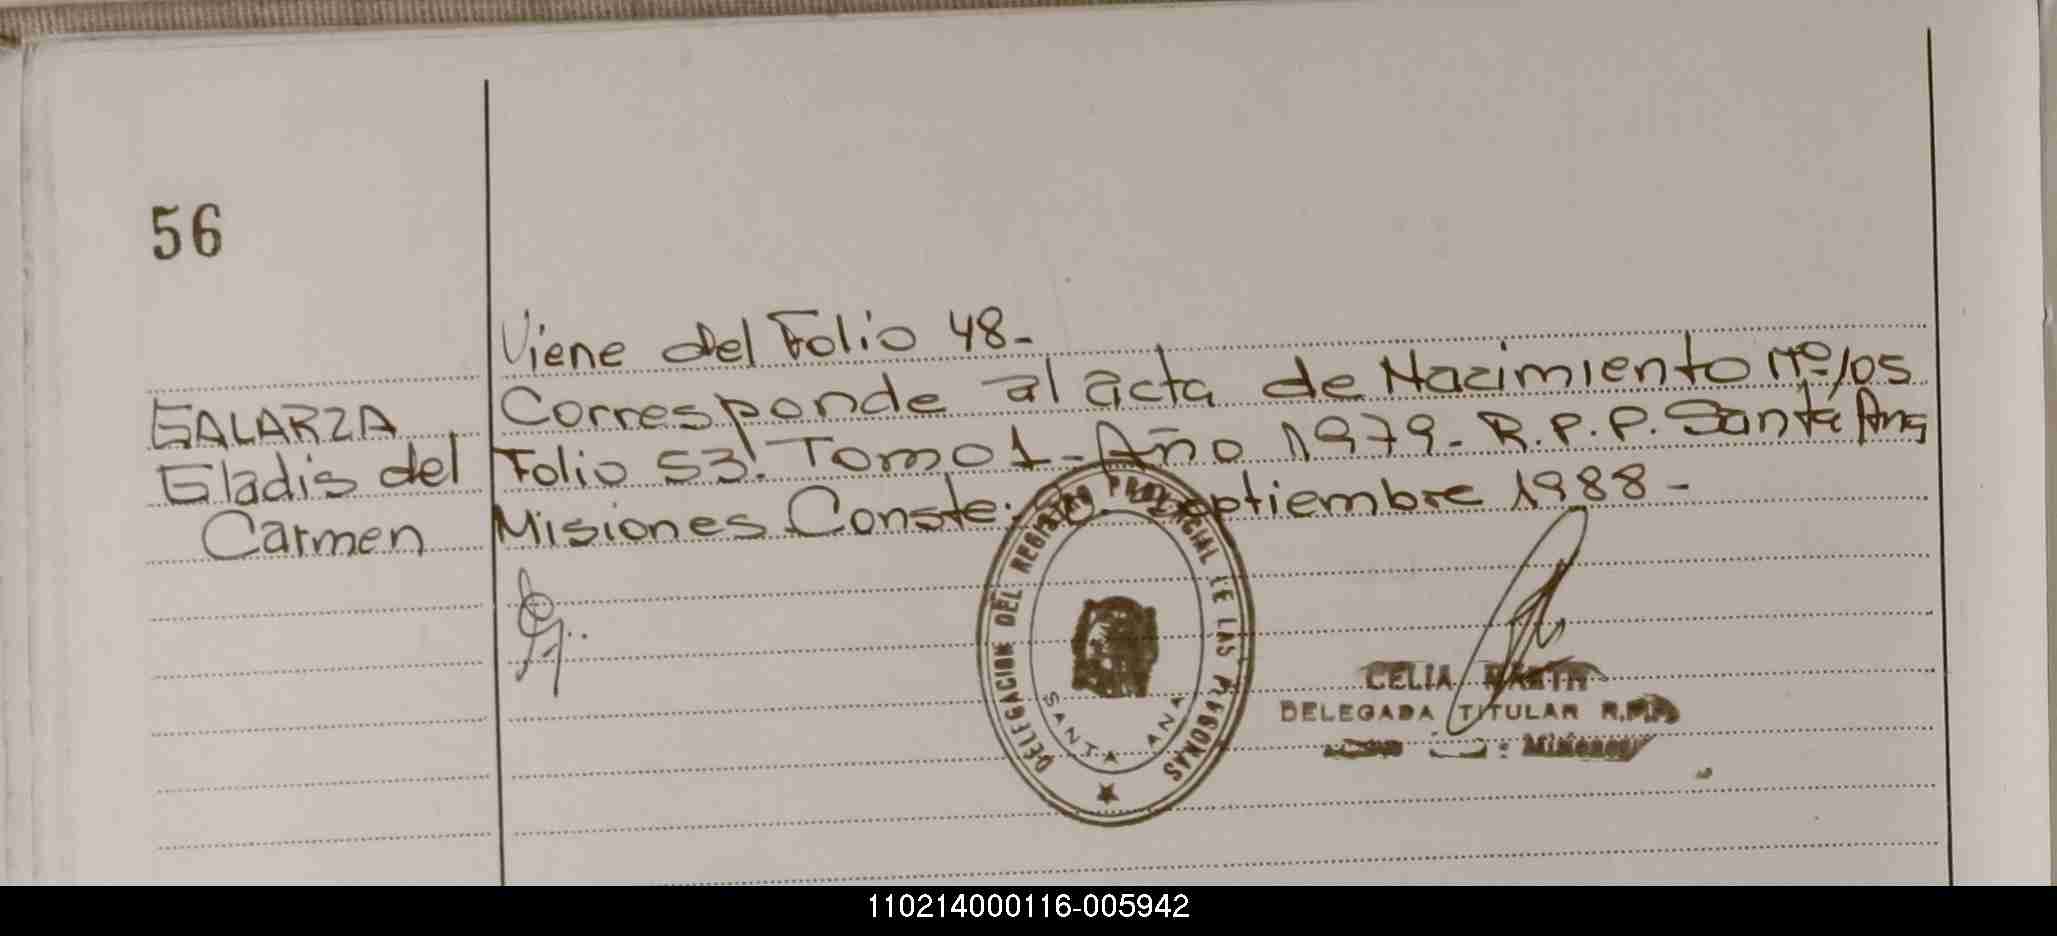 56
Viene del Folio 48-
Corresponde al acta de Nacimiento Nº 105
GALARZA
Folio 53. Tomo 1- Año 1979- R.P.P. Santa Ana
Gladis del
Misiones Conste: Septiembre 1988-
Carmen
DELEGACION DEL REGISTRO PROVINCIAL DE LAS PERSONAS
SANTA ANA
CELIA
DELEGADA TITULAR R.P.P.
Misiones
110214000116-005942